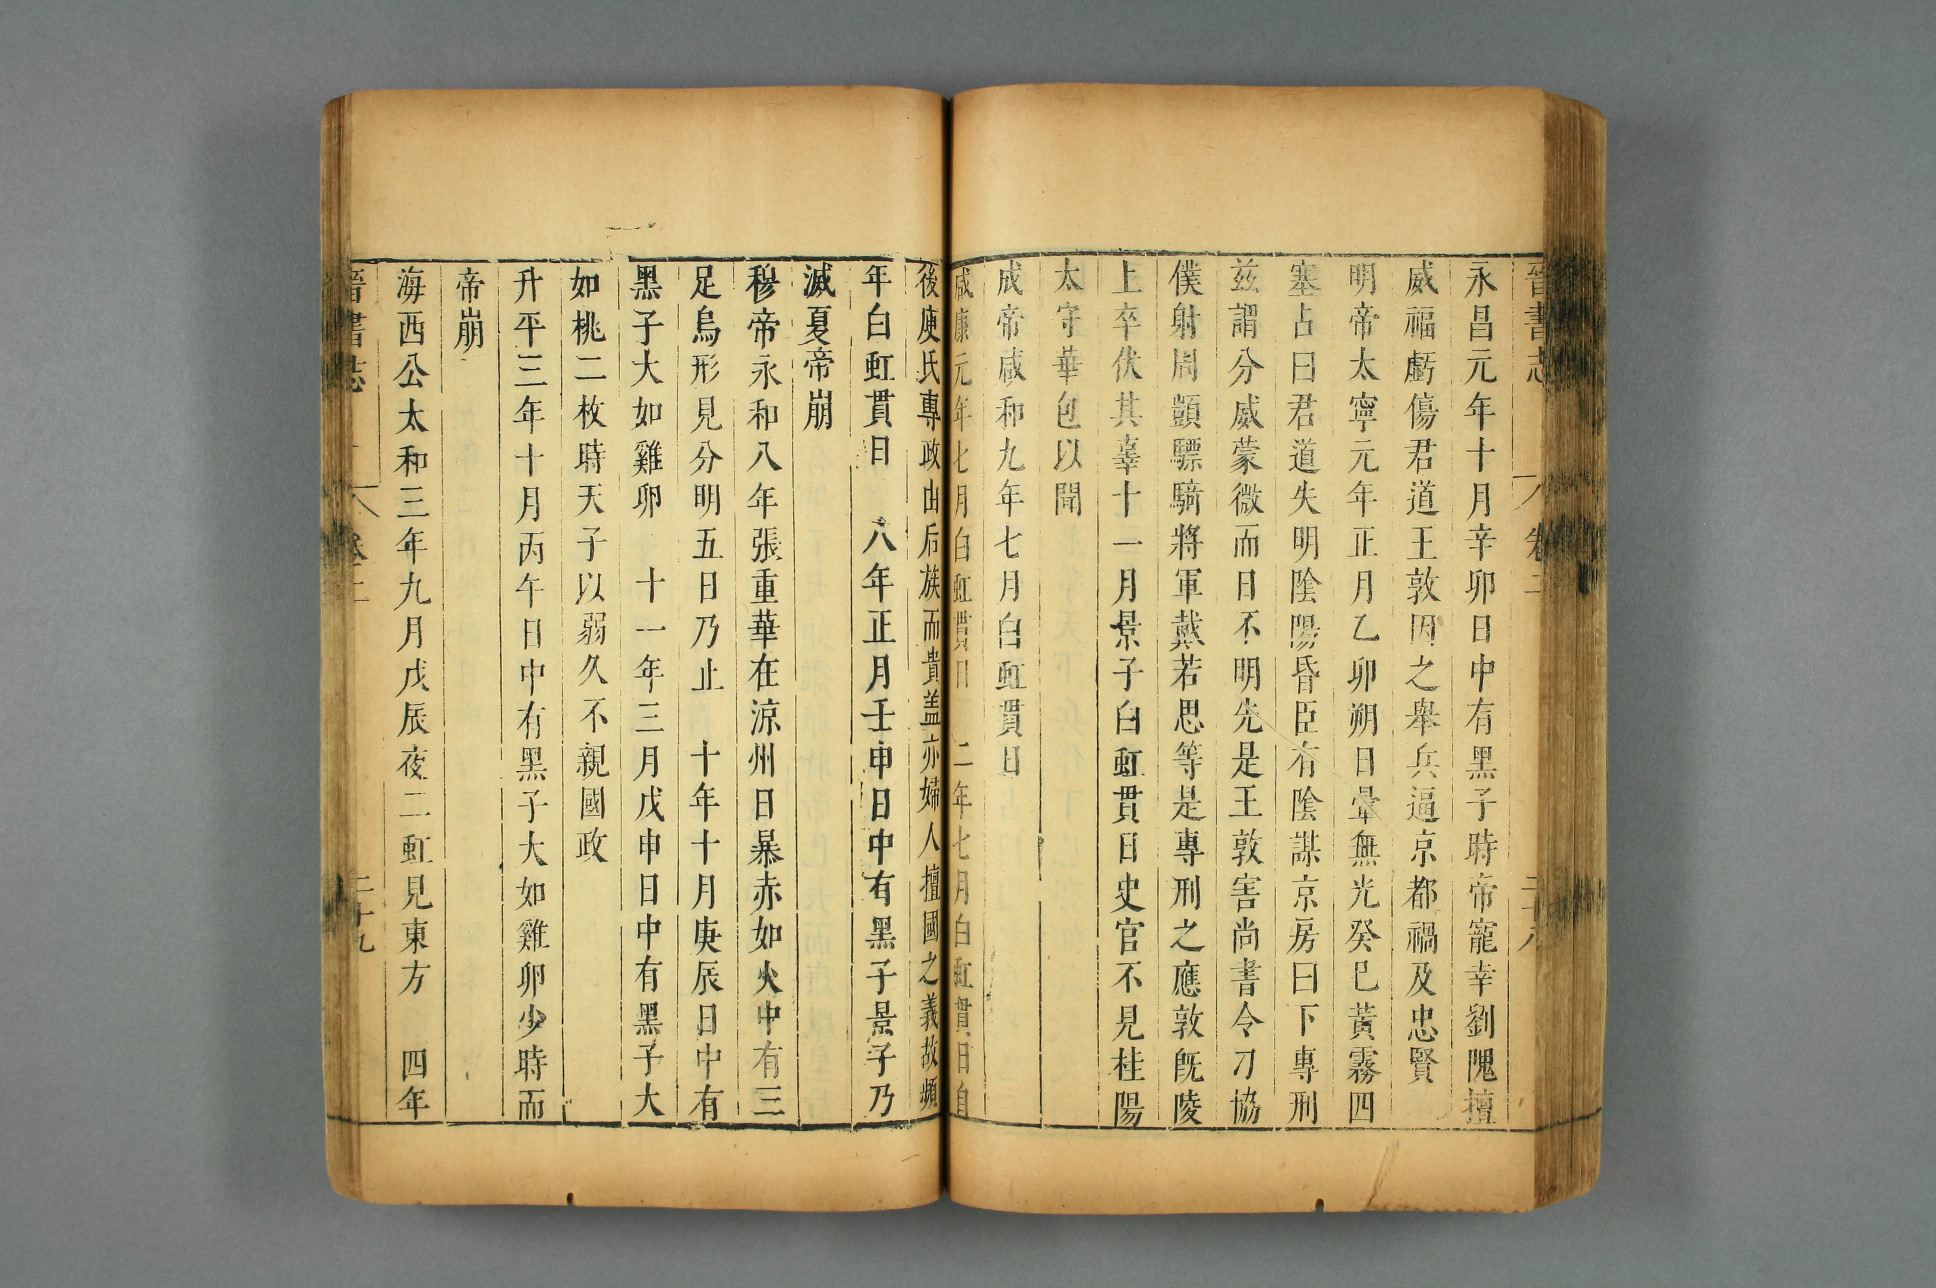 晉書志 卷二 二十八
永昌元年十月辛卯日中有黑子時帝寵幸劉隗擅
威福虧傷君道王敦因之舉兵逼京都禍及忠賢
明帝太寧元年正月乙卯朔日暈無光癸巳黃霧四
塞占曰君道失明陰陽昏臣有陰謀京房曰下專刑
兹謂分威蒙微而日不明先是王敦害尚書令刁協
僕射周顗驃騎將軍戴若思等是專刑之應敦既陵
上卒伏其辜十一月景子白虹貫日史官不見桂陽
太守華包以聞
成帝咸和九年七月白虹貫日
咸康元年七月白虹貫日 二年七月白虹貫日自
後庾氏專政由后族而貴蓋亦婦人擅國之義故頻
年白虹貫日 八年正月壬申日中有黑子景子乃
滅夏帝崩
穆帝永和八年張重華在涼州日暴赤如火中有三
足烏形見分明五日乃止 十年十月庚辰日中有
黑子大如雞卵 十一年三月戊申日中有黑子大
如桃二枚時天子以弱久不親國政
升平三年十月丙午日中有黑子大如雞卵少時而
帝崩
海西公太和三年九月戊辰夜二虹見東方 四年
晉書志 卷二 二十九